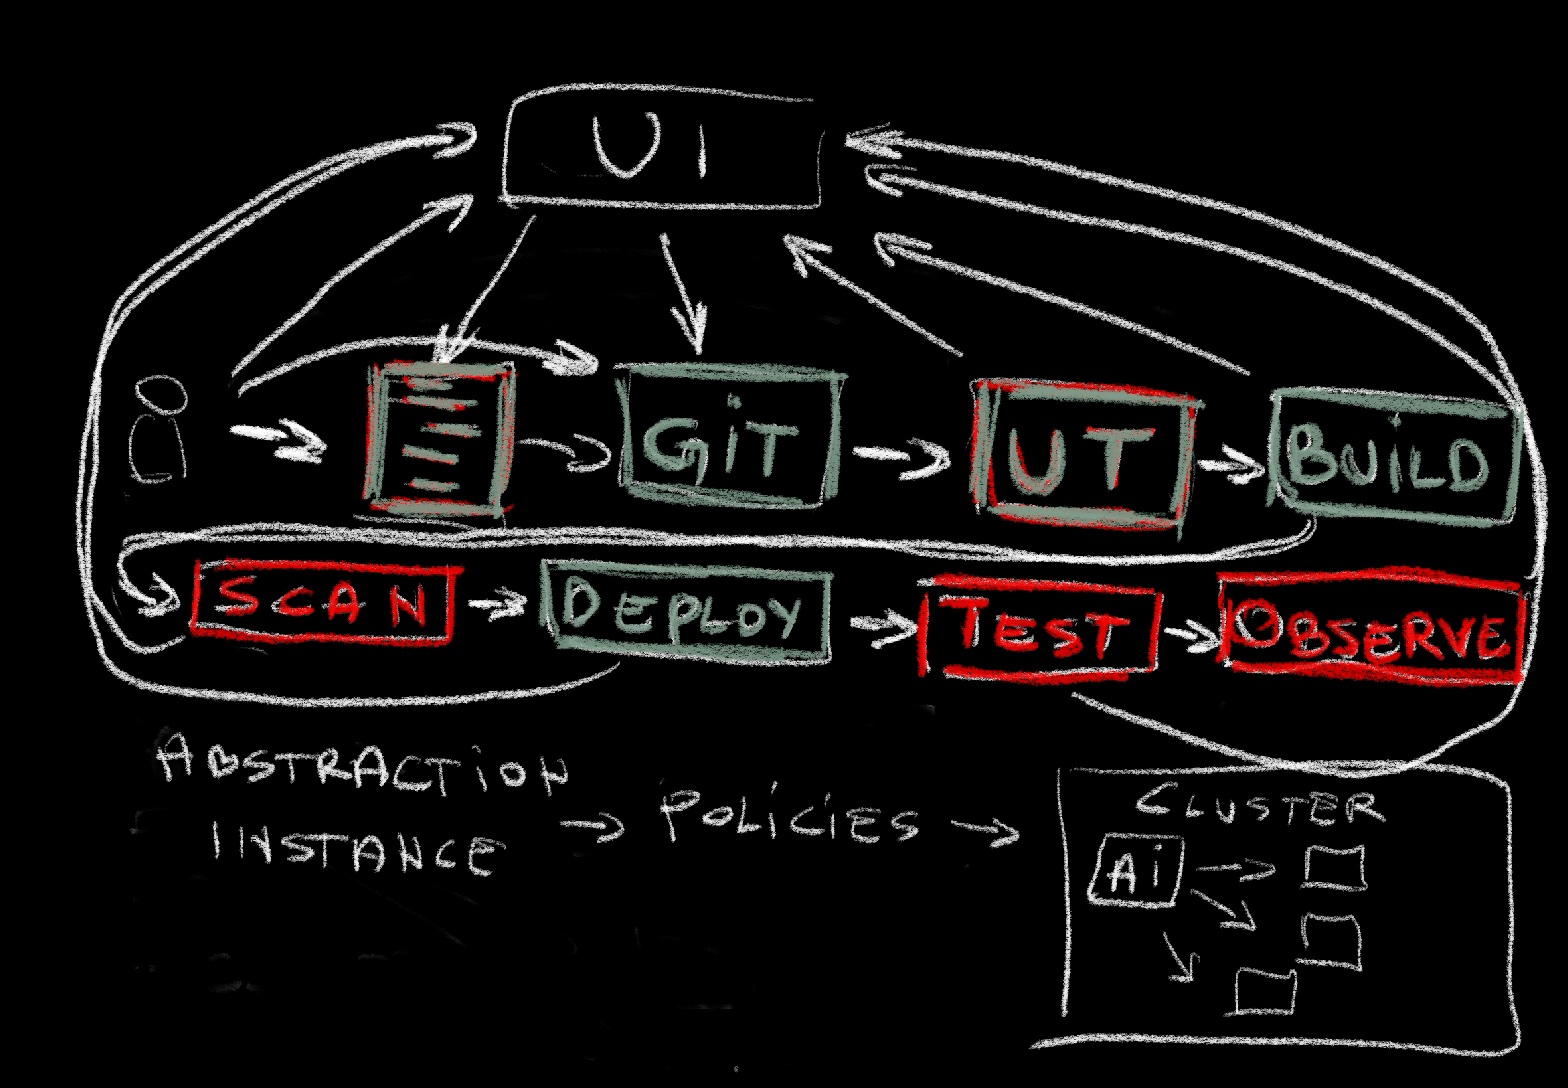 UI
GiT
UT
BUiLD
SCAN
DEPLOY
TEST
OBSERVE
ABSTRACTiON
INSTANCE
→ POLiCiES →
CLUSTER
Ai